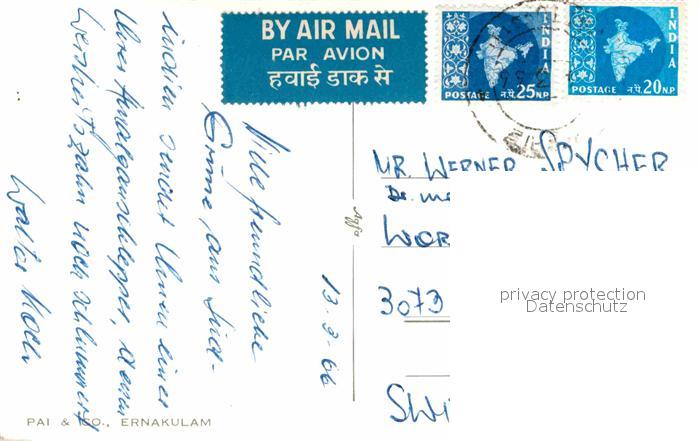 BY AIR MAIL
PAR AVION
हवाई डाक से
INDIA
POSTAGE न.पै. 25 N.P.
INDIA
POSTAGE न.पै. 20 N.P.
Viele freundliche
Grüsse, aus Süd-
indien sendet Ihnen einer
Ihrer
Weisheitszahn noch schlummert
Walter
13-3-66
MR. WERNER SPYCHER
Dr. me
WOR
3073
SWI
privacy protection
Datenschutz
PAI & CO., ERNAKULAM